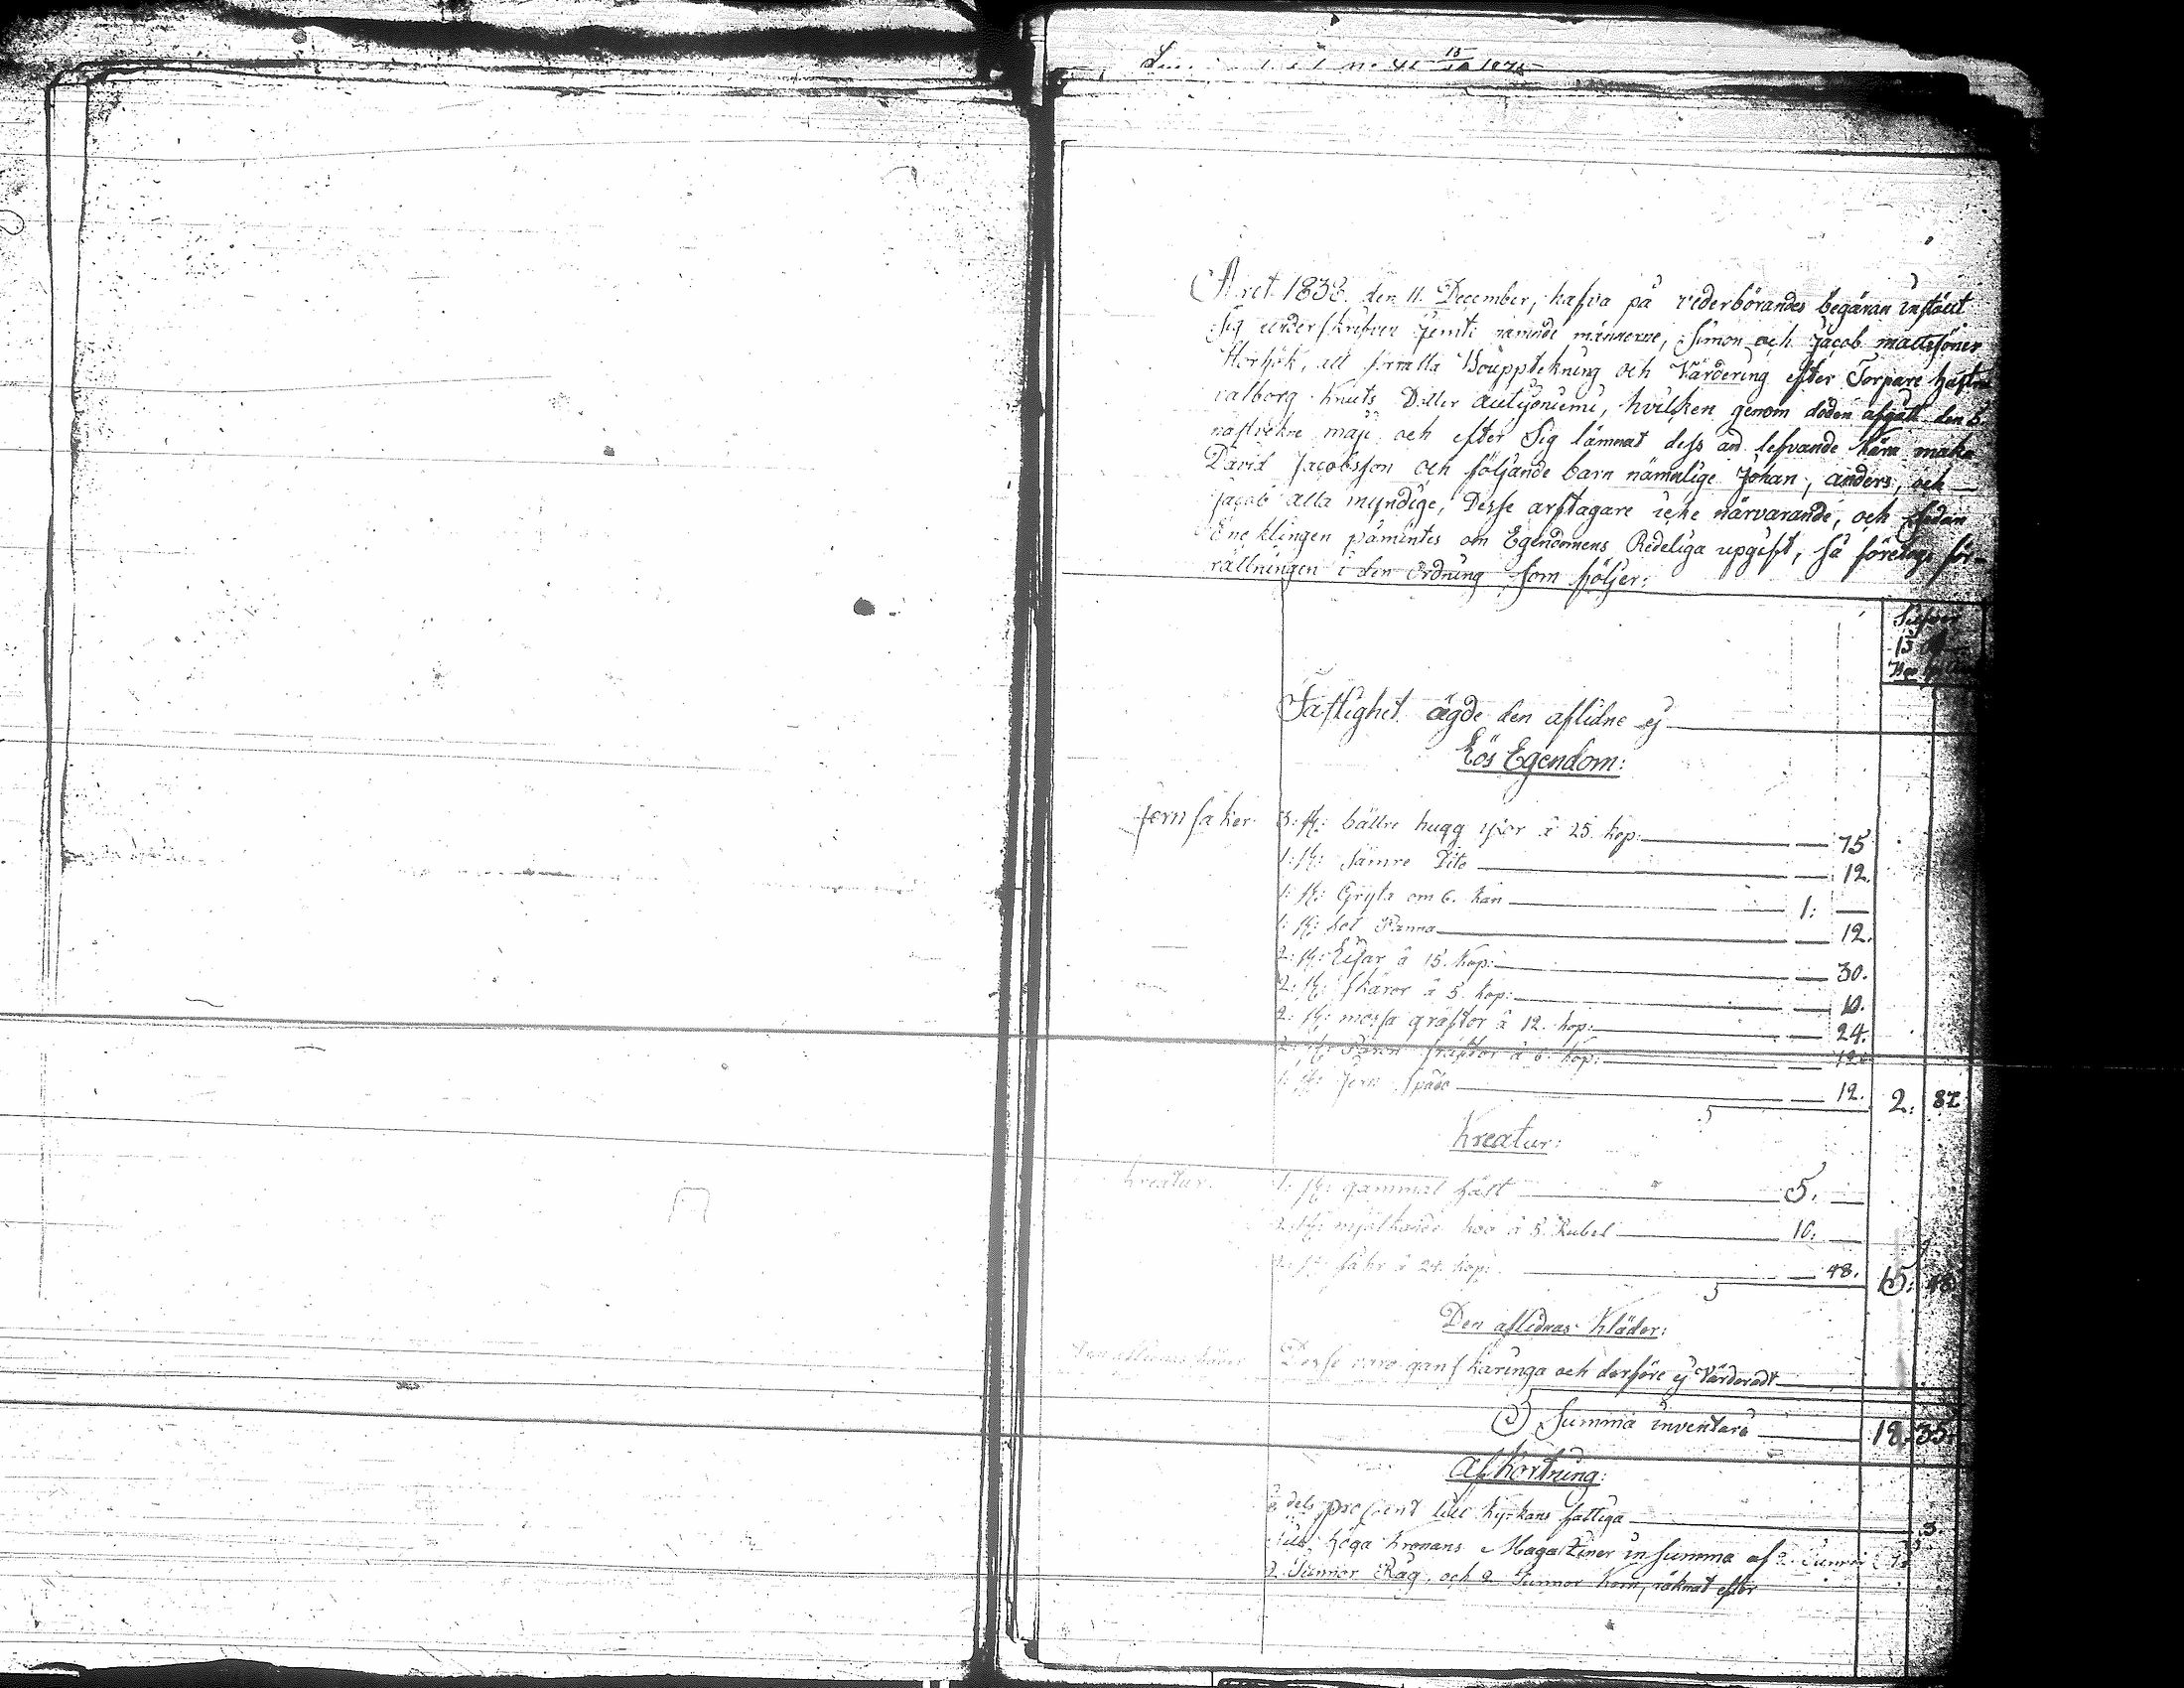 Året 1838. den 11. December, hafva på vederbörandes begäran instält
sig underskrifven jemte nämnde männerne, Simon och Jacob mattssöner
att förrätta Bouppteckning och Värdering efter Torpare hustru
valborg Knuts Dotter, hvilken genom döden afgått den
maji och efter Sig lämnat dess än lefvande kära maka
David Jacobsson och följande barn nämnlige Johan, anders, och
Jacob alla myndige, Desse arftagare icke närvarande, och sedan
Encklingen påmintes om Egendomens Redeliga upgift, så företogs för-
rättningen i den Ordning som följer:
Silfver
Fastighet ägde den aflidne ej
Lös Egendom:
Jernsaker 3: st: bättre hugg yxor à 25. kop: 75
1: st: sämre Dito 12.
1: st: Gryta om 6. kan 1:
1: st: Panna 12.
2: st: Lijar à 15. kop: 30.
2: st: skäror à 5. kop: 10.
2: st: mossa gräftor à 12. kop: 24.
à 6. kop: 12.
1: st: Jern spade 12. 2: 87
Kreatur:
Kreatur. 1: st: gammal häst 5.
2: st: mjölkande kor à 5. Rubel 10.
2: st: fåhr à 24. kop: 48. 15: 48
Den aflidnas Kläder:
Den aflidnas kläder Desse voro ganska ringa och derföre ej Värderadt
Summa inventarii 18. 35.
Afkortning:
procent till kyrkans fattiga
höga Kronans Magaziner in summa af 2. Tunnor
2. Tunnor Råg, och 2 Tunnor korn, räknat efter